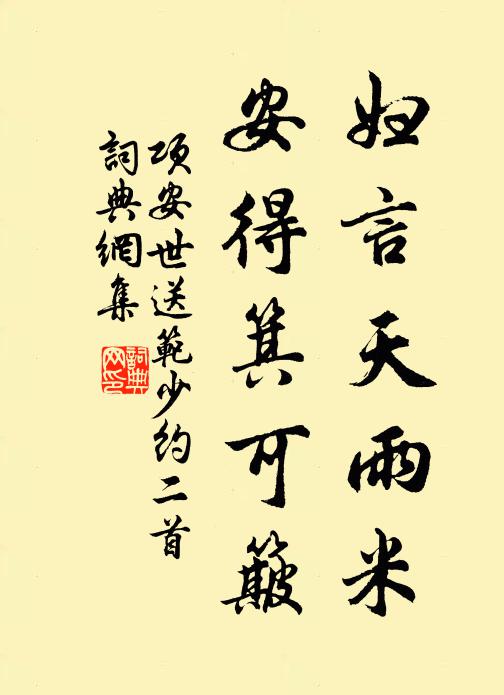 妇言天雨米
安得箕可簸
项安世送範少约二首
詞典網集
詞典网印